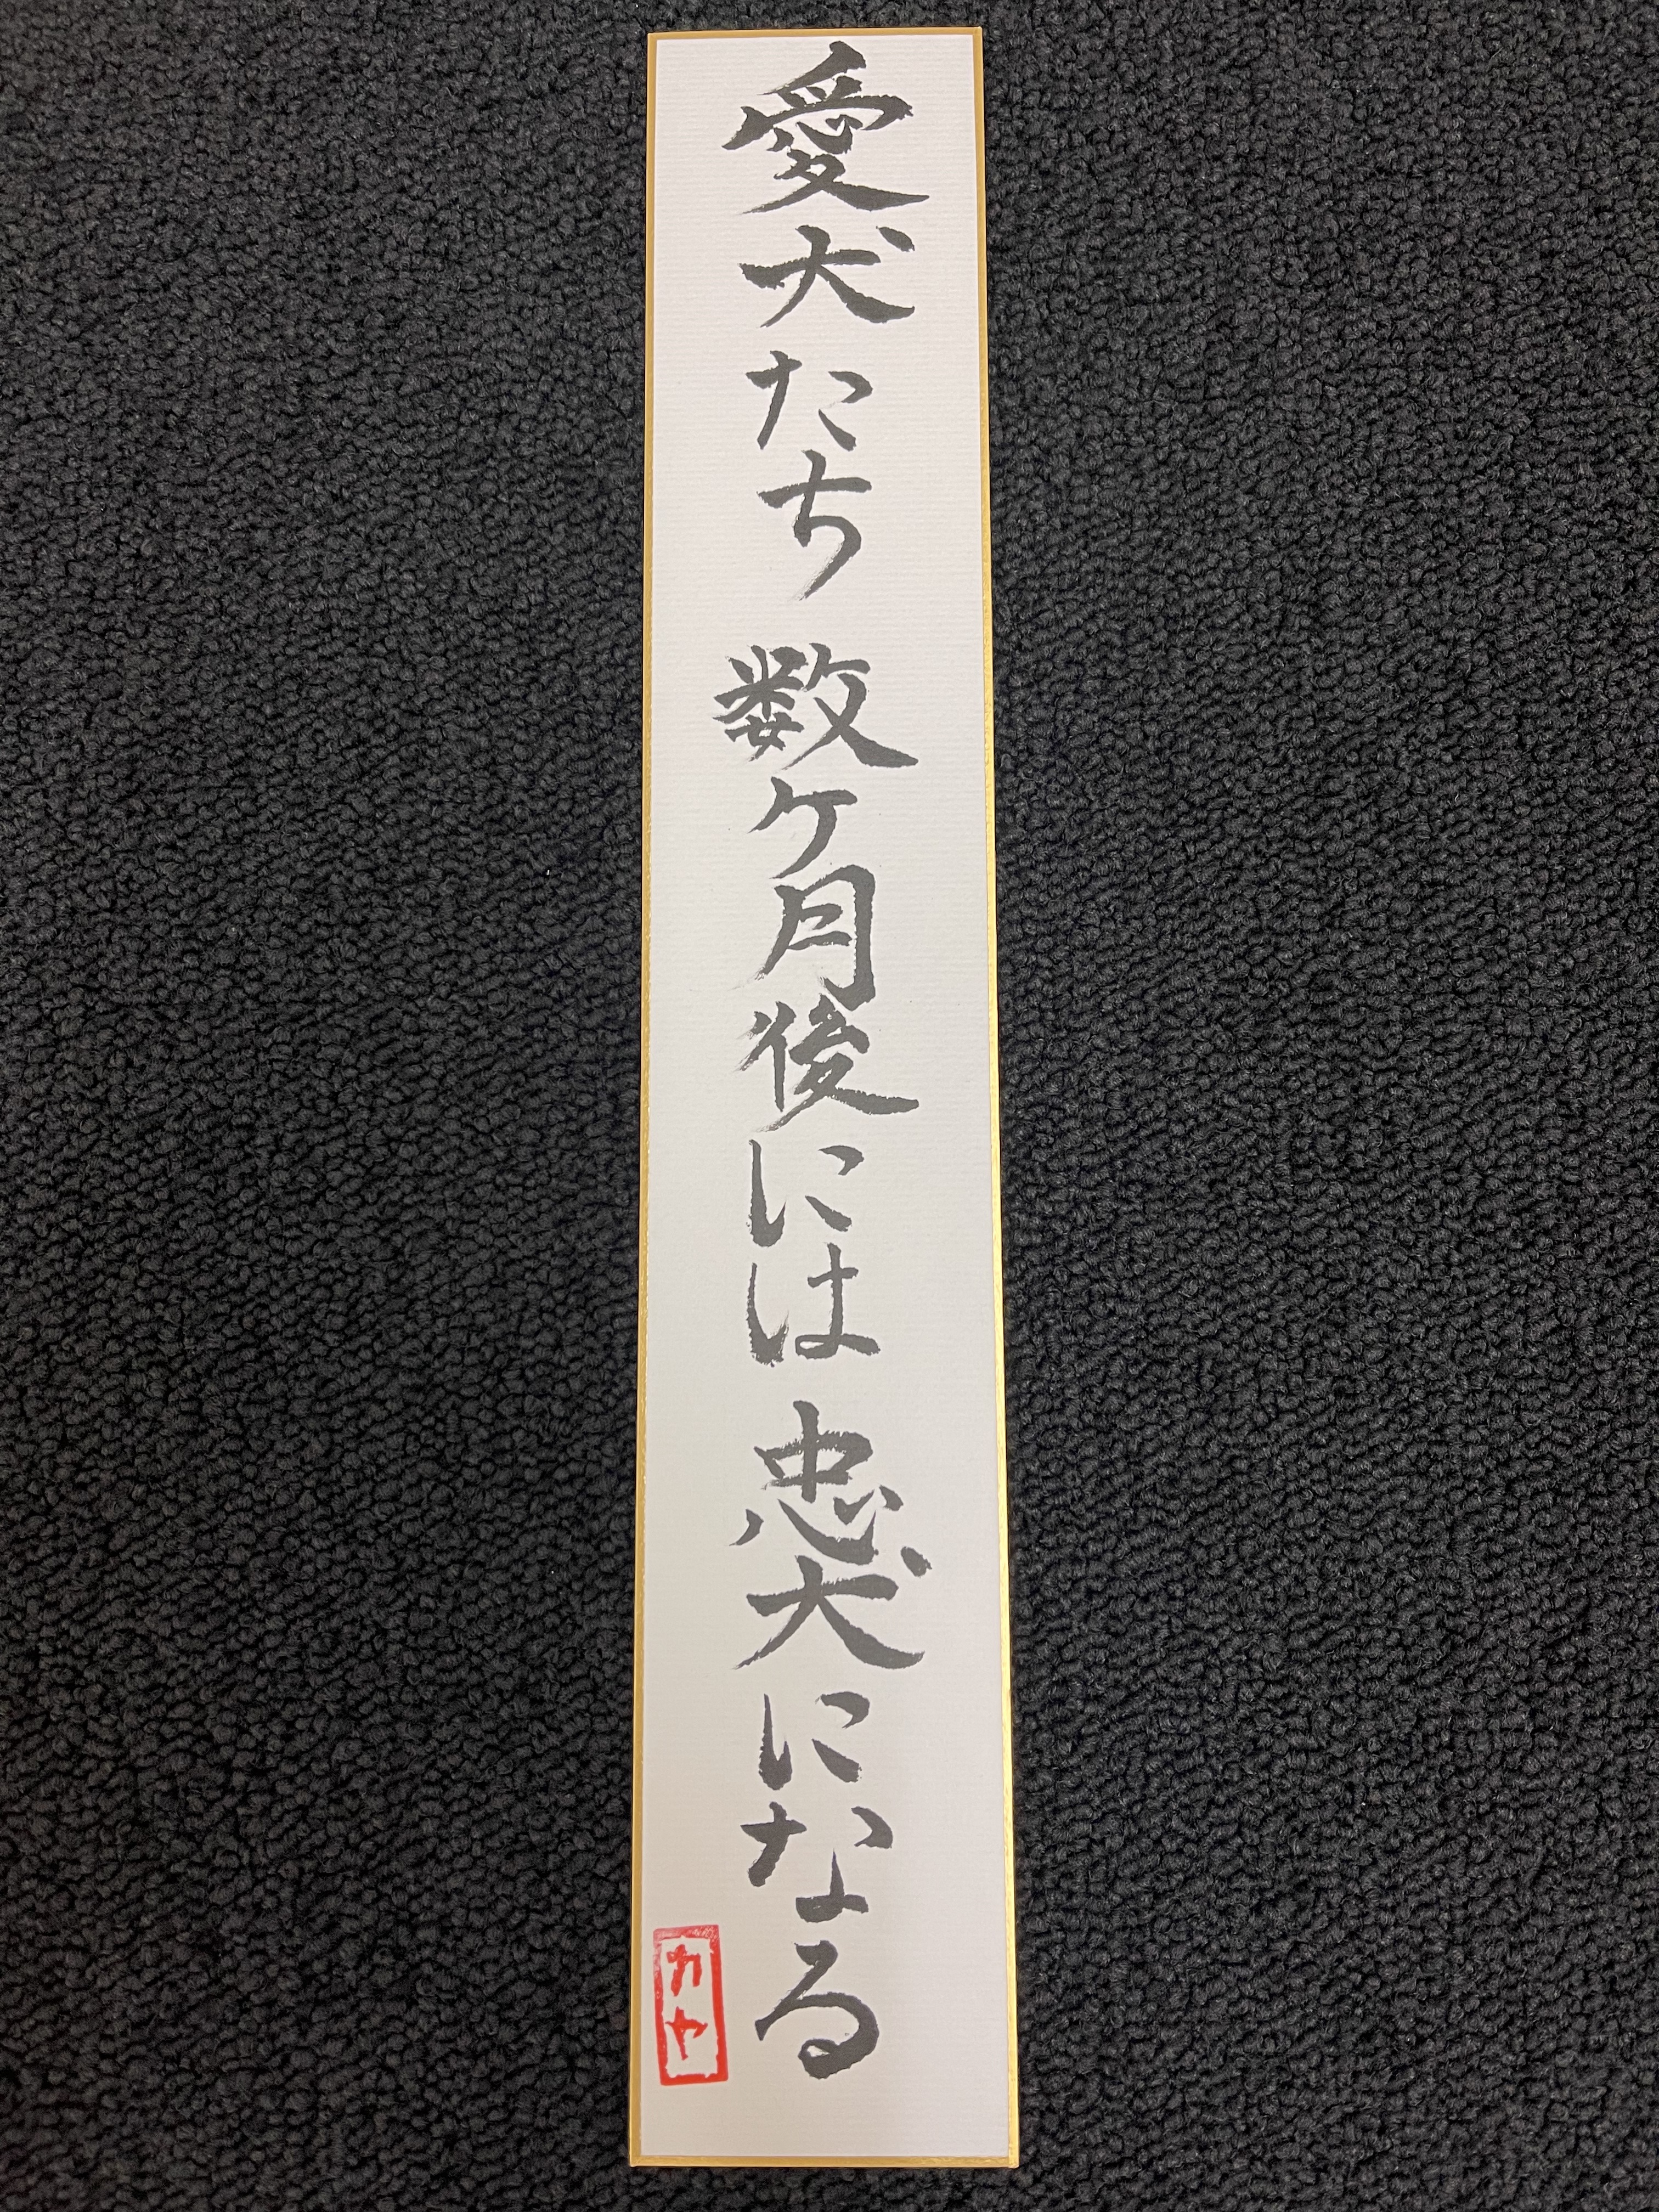 愛犬たち 数ケ月後には 忠犬になる
カヤ